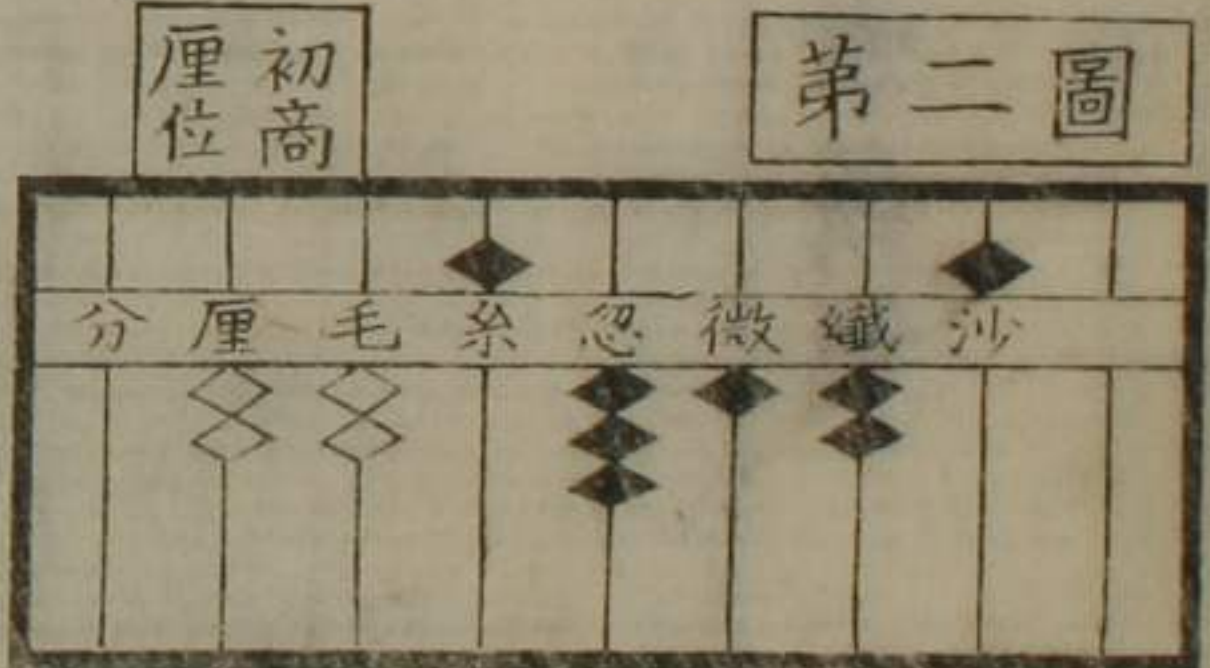 第二圖
初商
厘位
分厘毛糸忽微纖沙